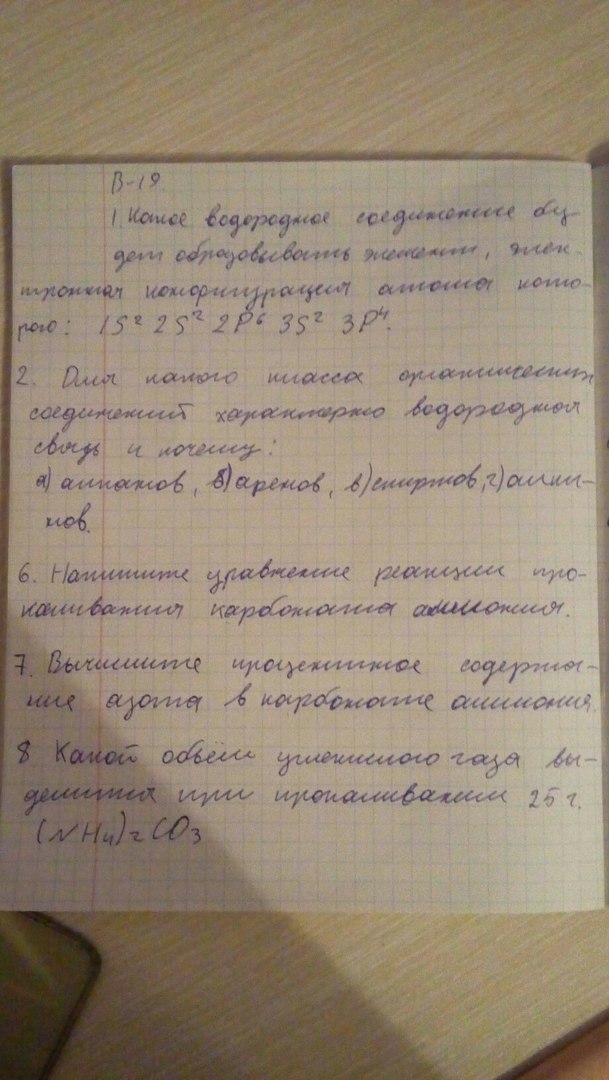 В-19.
1. Какое водородное соединение бу-
дет образовывать элемент, элек-
тронная конфигурация атома кото-
рого: 1S² 2S² 2P⁶ 3S² 3P⁴.
2. Для какого класса органических
соединений характерно водородная
связь и почему:
а) алканов, б) аренов, в) спиртов, г) алки-
нов.
6. Напишите уравнение реакции про-
каливания карбоната аммония.
7. Вычислите процентное содержа-
ние азота в карбонате аммония.
8 Какой объём углекислого газа вы-
делится при прокаливании 25 г.
(NH₄)₂CO₃